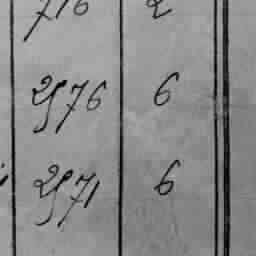 716 2
2576 6
2571 6